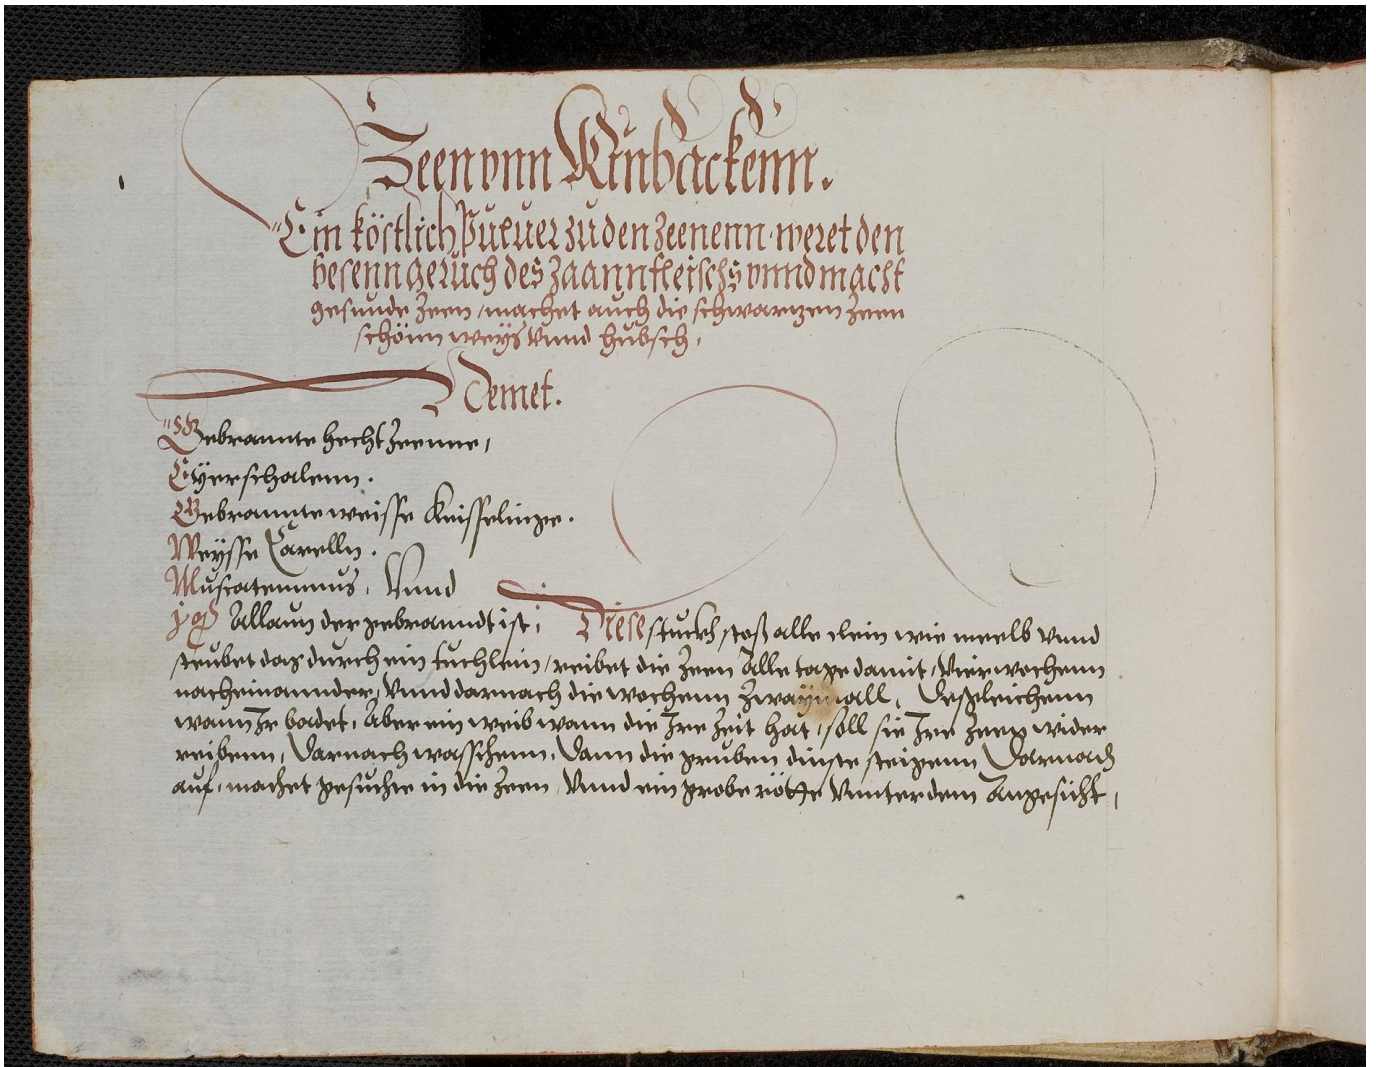 Zeen vnn Kinbackenn.
Ein köstlich Puluer zu den Zeenenn. weret den
besenn geruch des Zaannfleischs vnnd macht
gesunde Zeen, machet auch die schwartzen Zeen
schönn weÿs Vnnd hubsch,
Nemet.
Gebrannte hecht Zeenne,
Eÿerschalenn.
Gebrannte weisse Keisselinge.
Weÿsse Carelln.
Muscatennnus, Vnnd
Allaun der gebranndt ist, Diese stuckh stoß alle clein wie meelb Vnnd
reibet die Zeen Alle tage damit, Vier wochenn
nacheinannder, Vnnd darnach die wochenn Zwaÿmall, Desgleichenn
wann Ir badet, Aber ein weib wann die Ire Zeit hat, soll sie Ire Zeen wider
reibenn, Darnach wasschenn, Dann die gruben dinste steigenn Darnach
auf, machet gesuchte in die Zeen, Vnnd ein grobe rötte Vnnter dem Angesicht,